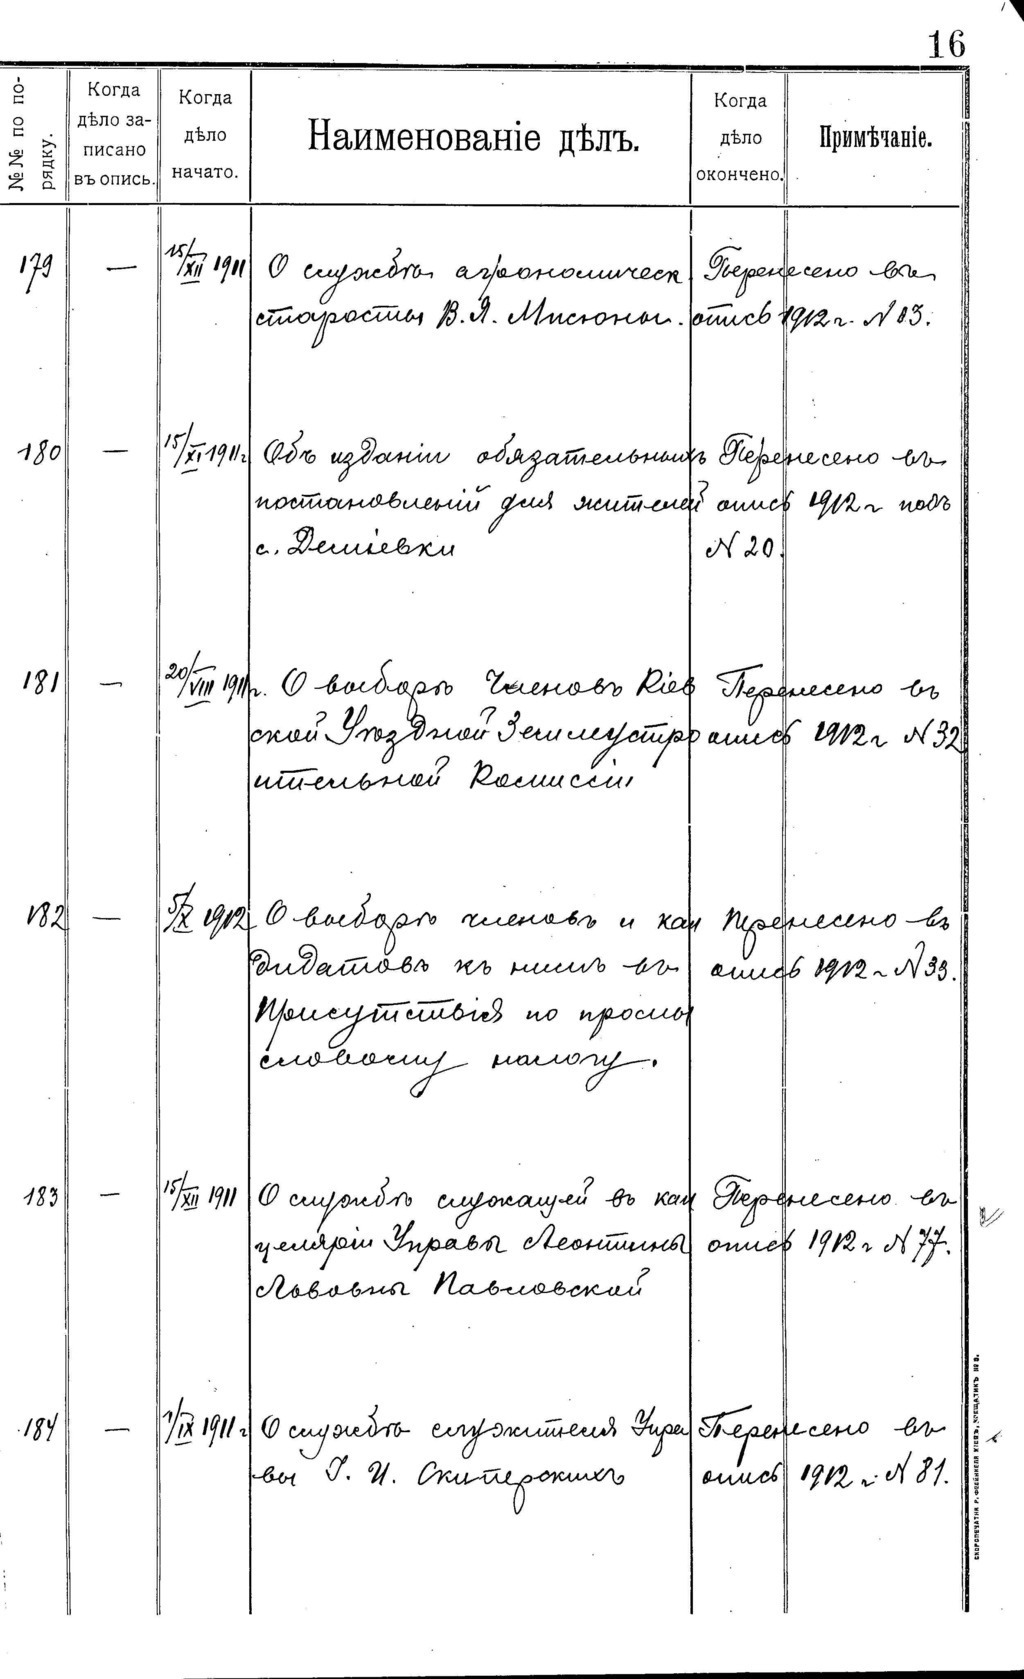 16
№№ по по-
рядку.
Когда
дѣло за-
писано
въ опись.
Когда
дѣло
начато.
Наименованіе дѣлъ.
Когда
дѣло
окончено.
Примѣчаніе.
179 — 15/XII 1911 О службѣ агрономическ Перенесено въ
старосты В. Я. Мисюны. опись 1912 г. № 83.
180 — 15/XI 1911 г Объ изданіи обязательныхъ Перенесено въ
постановленій для жителей опись 1912 г подъ
с. Деміевки № 20.
181 — 20/VIII 1911 г. О выборѣ Членовъ Кіев Перенесено въ
ской Уѣздной Землеустро опись 1912 г № 32
ительной Комиссіи
182 — 5/X 1912 О выборѣ членовъ и кан Перенесено въ
дидатовъ къ нимъ въ опись 1912 г № 33.
Присутствія по промы
словому налогу.
183 — 15/XII 1911 О службѣ служащей въ кан Перенесено въ
целяріи Управы Леонтины опись 1912 г № 77.
Львовны Павловской
184 — 1/IX 1911 г О службѣ служителя Упра Перенесено въ
вы Г. И. Скитерскихъ опись 1912 г. № 81.
СКОРОПЕЧАТНЯ Р. ФОЕЙНМЕЛЯ КІЕВЪ, КРЕЩАТИКЪ № 9.